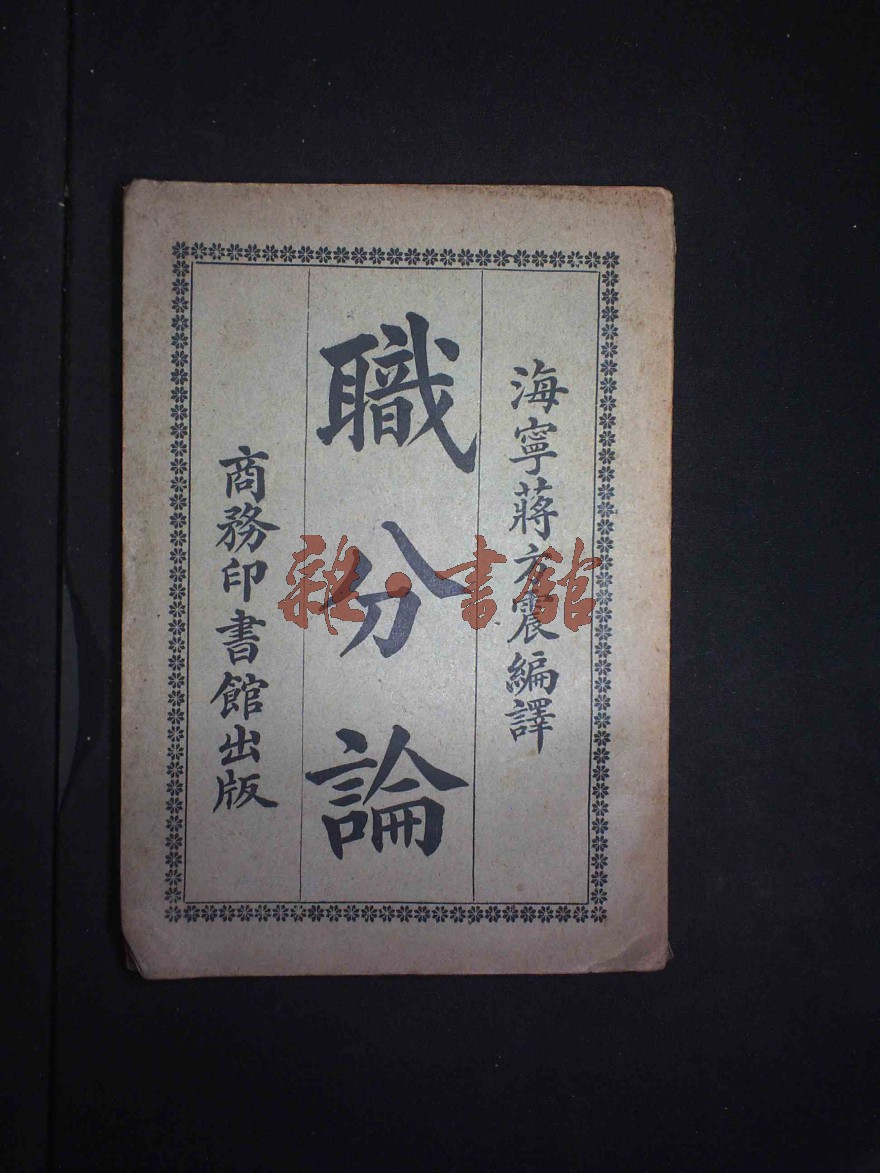 海寧蔣方震編譯
職分論
商務印書館出版
雜·書館